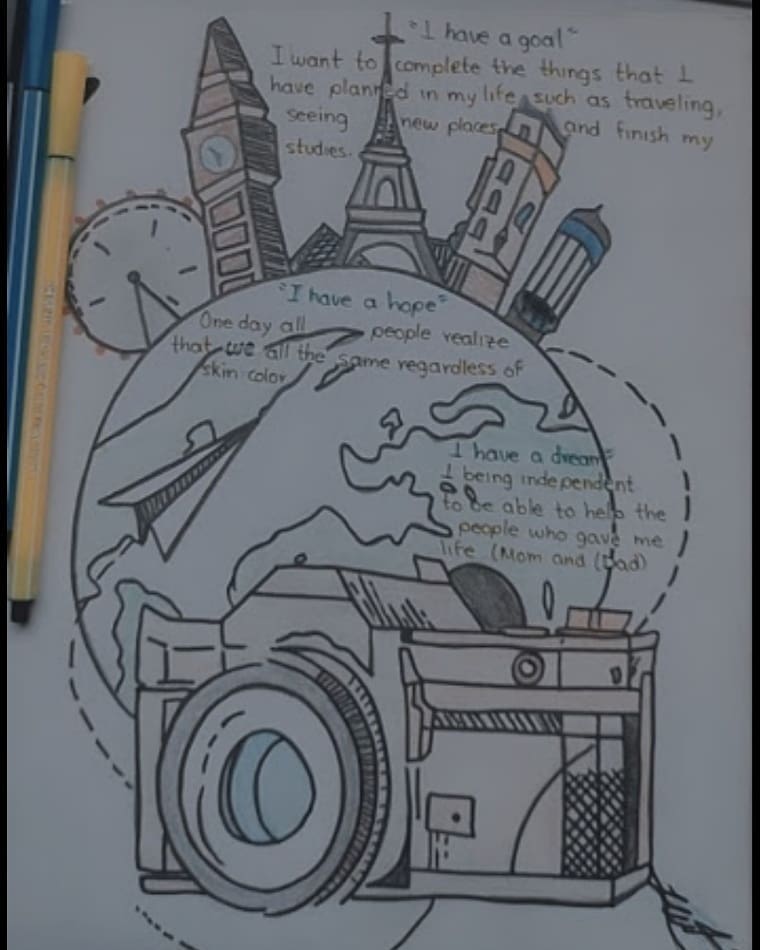 "I have a goal"
I want to complete the things that I
have planned in my life, such as traveling,
seeing new places, and finish my
studies.
"I have a hope"
One day all people realize
that we all the same regardless of
skin color
I have a dream"
I being independent
to be able to help the
people who gave me
life (Mom and (Dad)